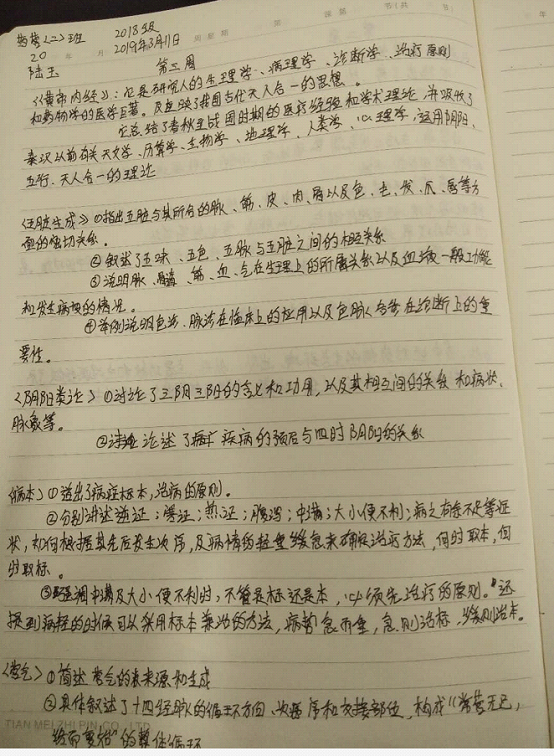 药营(二)班 2018级
20 年 月 2019年3月11日 星期 第 课题 节(共 节)
陆玉 第三周
《黄帝内经》:它是研究人的生理学、病理学、诊断学、治疗原则
和药物学的医学巨著。及反映了我国古代天人合一的思想。
它总结了春秋至战国时期的医疗经验和学术理论,并吸收了
秦汉以前有关天文学、历算学、生物学、地理学、人类学、心理学,运用阴阳、
五行、天人合一的理论
《五脏生成》①指出五脏与其所合的脉、筋、皮、肉、骨以及色、毛、发、爪、唇等方
面的密切关系。
②叙述了五味、五色、五脉与五脏之间的相互关系
③说明脉、髓、筋、血、气在生理上的所属关系以及血液一般功能
和发生病变的情况。
④举例说明色诊、脉诊在临床上的应用以及色脉合参在诊断上的重
要性。
《阴阳类论》①讨论了三阴三阳的含义和功用,以及其相互间的关系 和病状、
脉象等。
②论述了疾病的预后与四时阴阳的关系
《病本》①提出了病症标本,治病的原则。
②分别讲述逆证;寒证;热证;腹泻;中满;大小便不利;病之有余不足等症
状,如何根据其先后发生次序,及病情的轻重缓急来确定治疗方法,何时取本,何
时取标。
③强调中满及大小便不利时,不管是标还是本,必须先治疗的原则。还
提到病轻的时候可以采用标本兼治的方法,病势急而重,急则治标,缓则治本。
《营气》①简述营气的来源和生成
②具体叙述了十四经脉的循环方向、次序和交接部位,构成"常营无已,
终而复始"的整体循环
TIAN MEI ZHI PIN CO., LTD